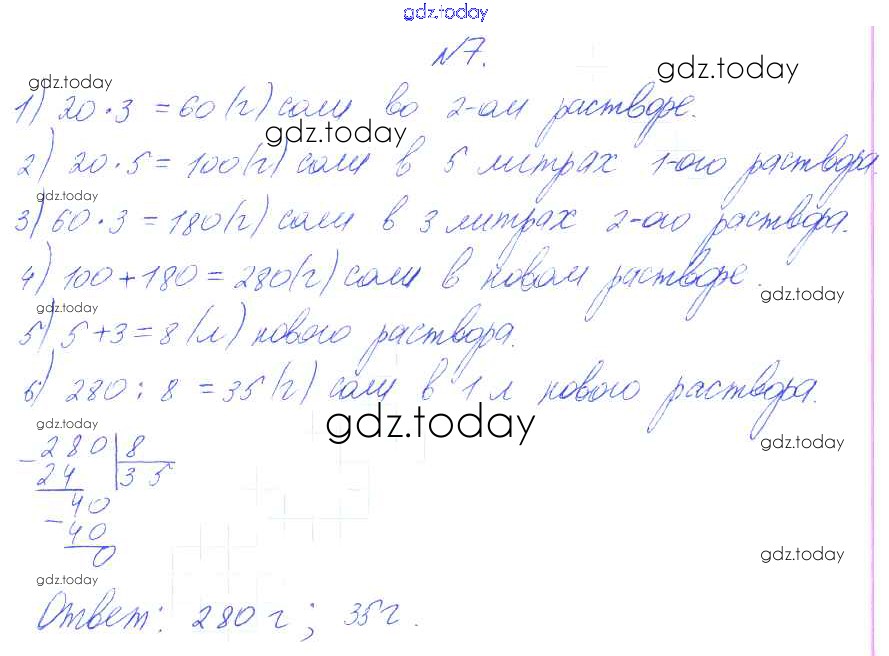 gdz.today
№7.
gdz.today
gdz.today
1) 20·3 = 60 (г) соли во 2-ом растворе.
gdz.today
2) 20·5 = 100 (г) соли в 5 литрах 1-ого раствора.
gdz.today
3) 60·3 = 180 (г) соли в 3 литрах 2-ого раствора.
4) 100+180 = 280 (г) соли в новом растворе.
gdz.today
gdz.today
5) 5+3 = 8 (л) нового раствора.
6) 280 : 8 = 35 (г) соли в 1 л нового раствора.
gdz.today
gdz.today
gdz.today
- 280 8
24 35
- 40
40
0
gdz.today
gdz.today
Ответ: 280 г; 35 г.